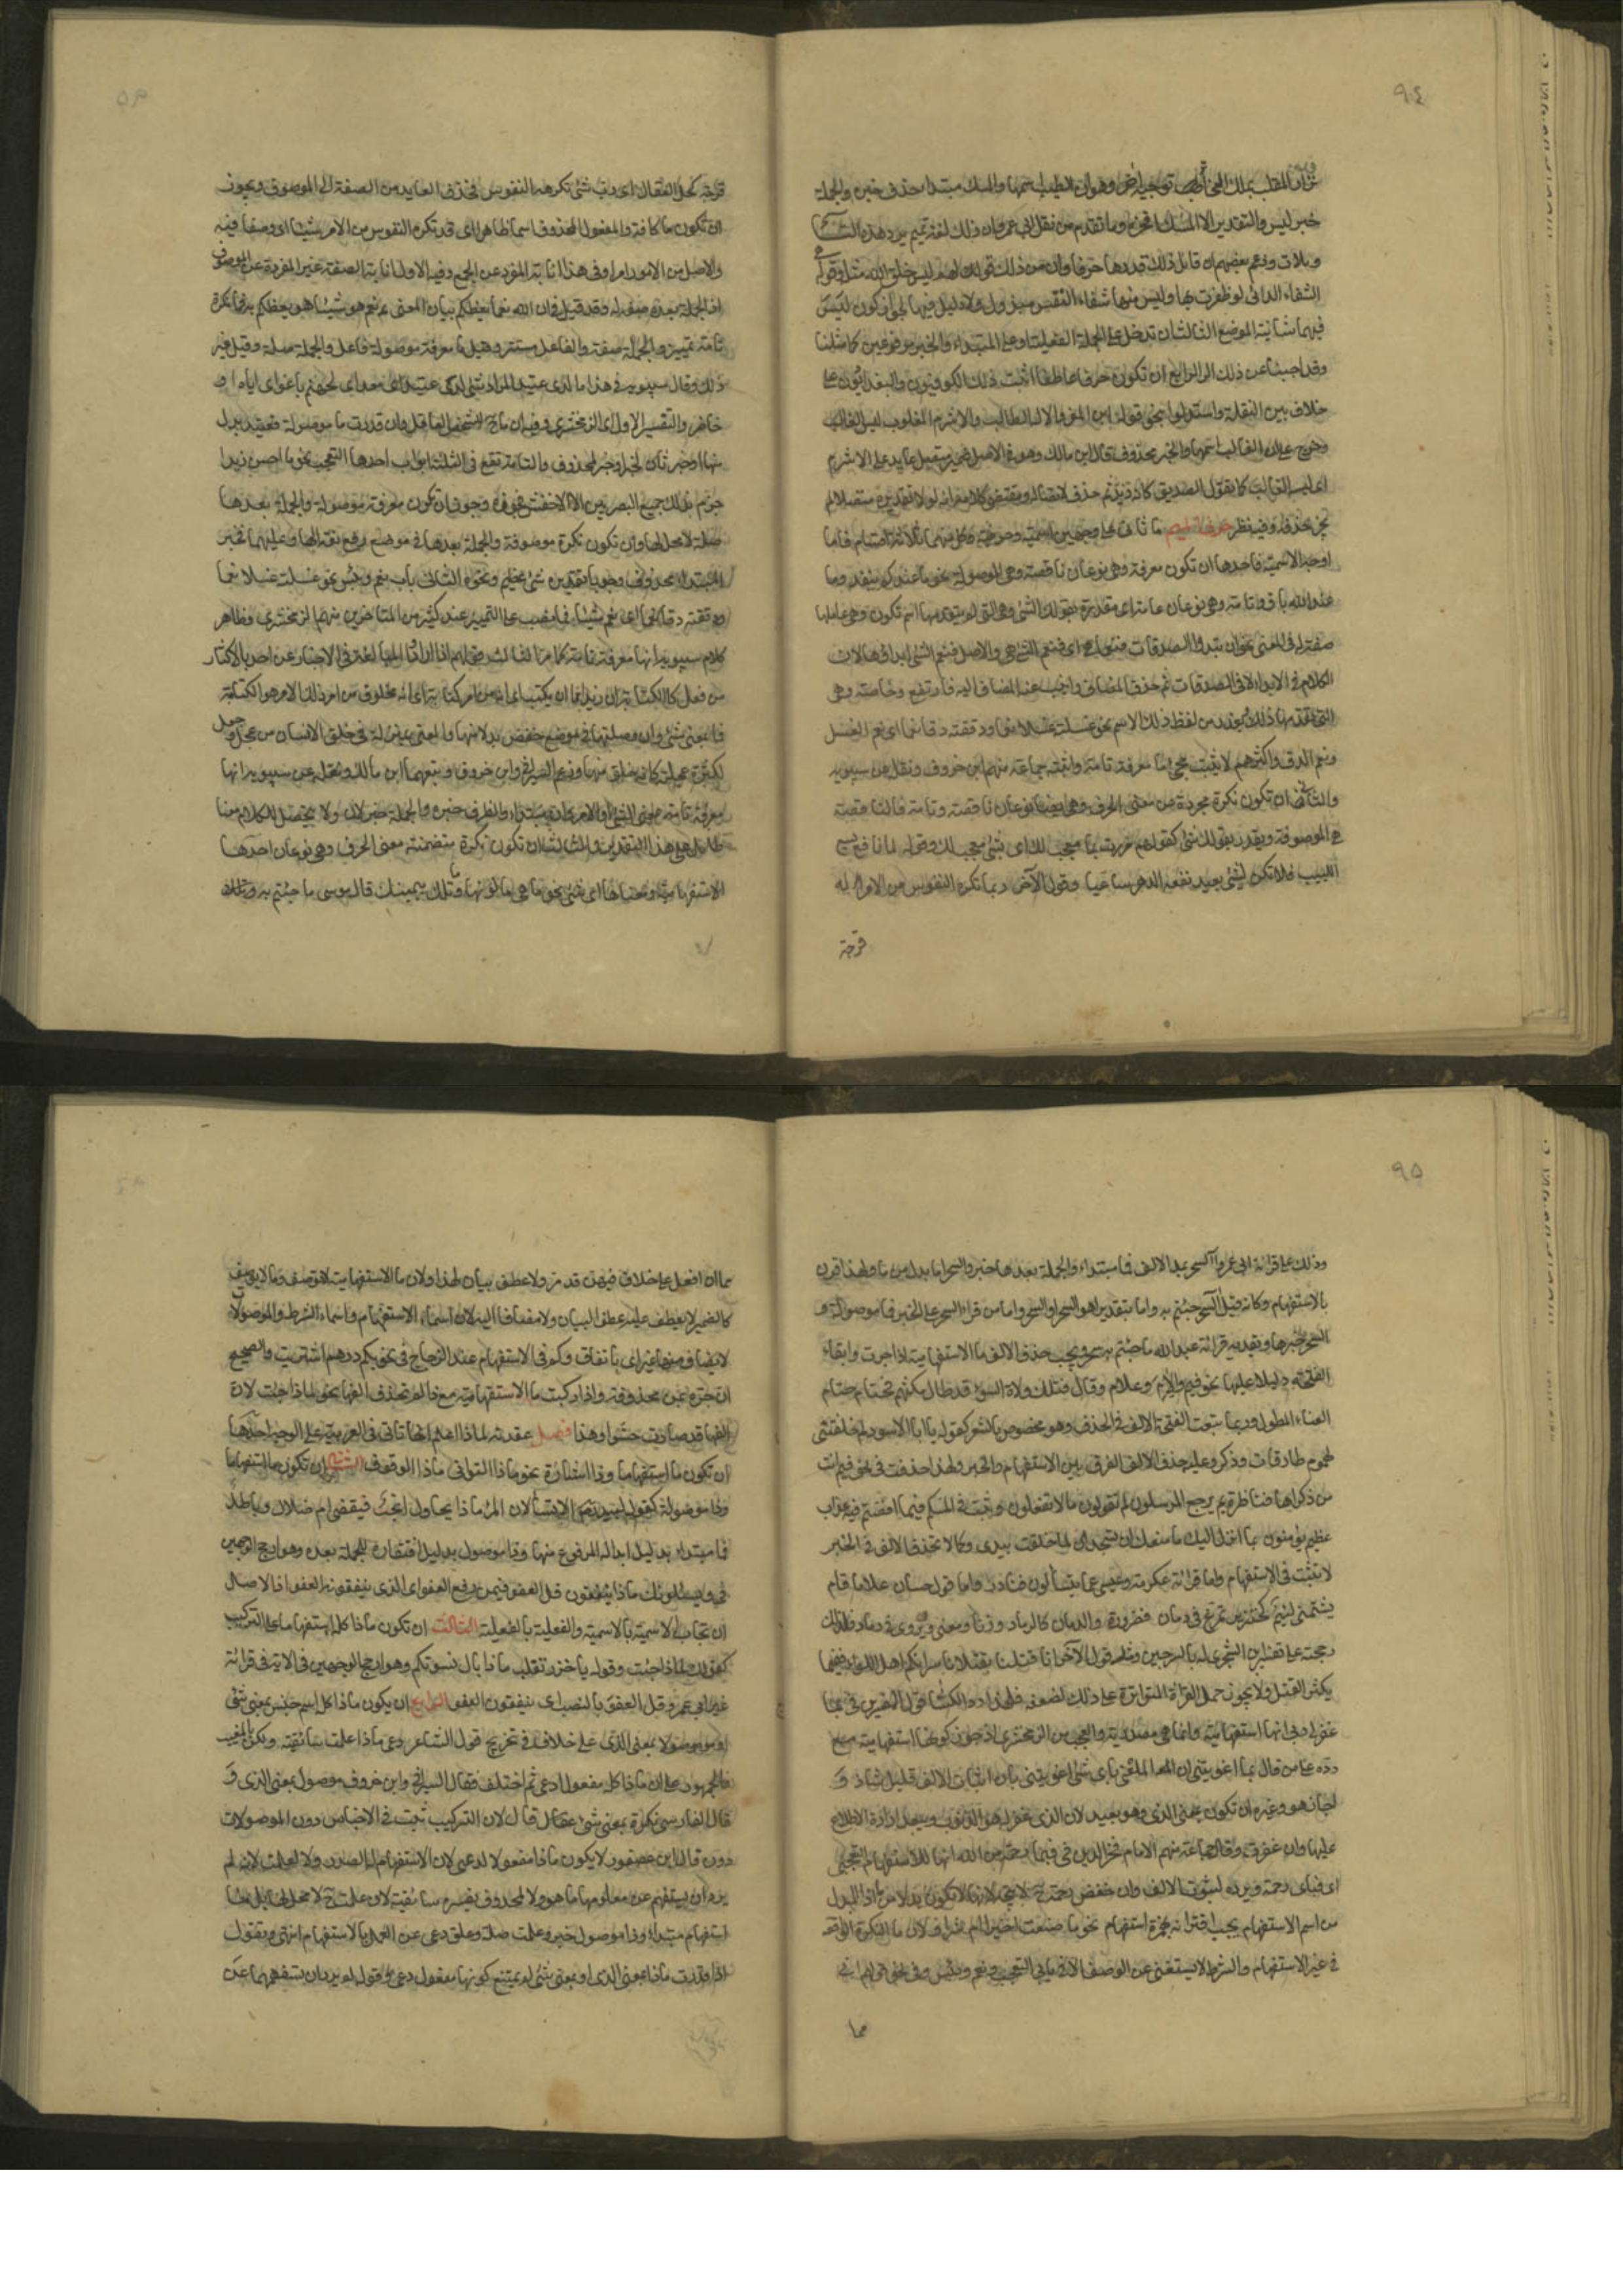 ٩٤
خبر ليس والتقدير الا المسك افخر وما تقدم من نقل ابي عمرو ان ذلك لغة تميم يرد هذه التا
ويلات وزعم بعضهم ان قايل ذلك قدرها حرفا وان من ذلك قولهم ليس خلق الله مثله وقوله
الشفاء الدائي لو ظفرت بها وليس منها شفاء النفس مبذول ولا دليل فيهما لجواز كون ليس
فيهما شانية الموضع الثالث ان تدخل على الجملة الفعلية او على المبتداء والخبر مرفوعين كما مثلنا
وقد اجبنا عن ذلك الرابع ان تكون حرفا عاطفا اثبت ذلك الكوفيون والبغداديون على
خلاف بين النقلة واستدلوا بنحو قوله اين المفر والاله الطالب والاشرم المغلوب ليس الغالب
وخرج على ان الغالب اسمها والخبر محذوف قال ابن مالك وهو في الاصل ضمير متصل عايد على الاشرم
اي ليسه الغالب كما تقول الصديق كانه زيد ثم حذف لاتصاله ومقتضى كلامه انه لولا تقديره متصلا لم
يجز حذفه وفيه نظر حرف الميم ما تاتي على وجهين اسمية وحرفية وكل منهما ثلاثة اقسام فاما
اوجه الاسمية فاحدها ان تكون معرفة وهي نوعان ناقصة وهي الموصولة نحو ما عندكم ينفد وما
عند الله باق وتامة وهي نوعان عامة اي مقدرة بقولك الشئ وهي التي لم يتقدمها اسم تكون وهي عاملها
صفة له في المعنى نحو ان تبدوا الصدقات فنعما هي اي فنعم الشئ هي والاصل فنعم الشئ ابداؤها لان
الكلام في الابداء لا في الصدقات ثم حذف المضاف وانيب عنه المضاف اليه فارتفع وخاصة وهي
التي تقدمها ذلك ويقدر من لفظ ذلك الاسم نحو غسلته غسلا نعما ودققته دقا نعما اي نعم الغسل
ونعم الدق واكثرهم لا يثبت مجئ ما معرفة تامة واثبته جماعة منهم ابن خروف ونقله عن سيبويه
والثاني ان تكون نكرة مجردة عن معنى الحرف وهي ايضا نوعان ناقصة وتامة فالناقصة
هي الموصوفة ويقدر بقولك شئ كقولهم مررت بما معجب لك اي بشئ معجب لك وقوله لما نافع يسعى
اللبيب فلا تكن لشئ بعيد نفعه الدهر ساعيا وقول الآخر ربما تكره النفوس من الامر له
فرجة
فرجة كحل العقال اي رب شئ تكرهه النفوس فحذف العايد من الصفة الى الموصوف ويجوز
ان تكون ما كافة والمفعول المحذوف اسما ظاهرا اي قد تكره النفوس من الامر شيئا اي وصفا فيه
والاصل من الامور امرا وفي هذا انابة المفرد عن الجمع وفيه الاول انابة الصفة غير المفردة عن الموصوف
اذ الجملة بعده صفة له وقد قيل في ان الله نعما يعظكم به ان المعنى نعم هو شيئا هو يعظكم به فما نكرة
تامة تمييز والجملة صفة والفاعل مستتر وقيل ما معرفة موصولة فاعل والجملة صلة وقيل غير
ذلك وقال سيبويه في هذا ما لدي عتيد المراد شئ لدي عتيد اي معد اي لجهنم باغوائي اياه او
حاضر والتفسير الاول رأي الزمخشري وفيه ان ما ح للشخص العاقل وان قدرت ما موصولة فعتيد بدل
منها او خبر ثان او خبر لمحذوف والتامة تقع في ثلثة ابواب احدها التعجب نحو ما احسن زيدا
جزم بذلك جميع البصريين الا الاخفش فجوزه وجوز ان تكون معرفة موصولة والجملة بعدها
صلة لا محل لها وان تكون نكرة موصوفة والجملة بعدها في موضع رفع نعتا لها وعليهما فخبر
المبتداء محذوف وجوبا تقديره شئ عظيم ونحوه الثاني باب نعم وبئس نحو غسلته غسلا نعما
ودققته دقا نعما اي نعم شيئا فما نصب على التمييز عند كثير من المتاخرين منهم الزمخشري وظاهر
كلام سيبويه انها معرفة تامة كما مر الثالث قولهم اذا ارادوا المبالغة في الاخبار عن احد بالاكثار
من فعل كالكتابة ان زيدا مما ان يكتب اي انه من امر كتابة اي انه مخلوق من امر ذلك الامر هو الكتابة
فما بمعنى شئ وان وصلتها في موضع خفض بدلا منها والمعنى بمنزلته في خلق الانسان من عجل جعل
لكثرة عجلته كانه خلق منها وزعم السيرافي وابن خروف وتبعهما ابن مالك ونقله عن سيبويه انها
معرفة تامة بمعنى الشئ او الامر وان وصلتها مبتداء والظرف خبره والجملة خبر لان ولا يتحصل للكلام معنا
طائل على هذا التقدير والثالث ان تكون نكرة متضمنة معنى الحرف وهي نوعان احدهما
الاستفهامية ومعناها اي شئ نحو ما هي ما لونها وما تلك بيمينك قال موسى ما جئتم به
٩٥
وذلك على قرائة ابي عمرو آلسحر بمد الالف فما مبتداء والجملة بعدها خبر والسحر اما بدل من ما ولهذا قرن
بالاستفهام وكانه قيل آلسحر جئتم به واما بتقدير اهو السحر او السحر هو واما من قرأ السحر على الخبر فما موصولة و
السحر خبرها ويقويه قرائة عبد الله ما جئتم به سحر ويجب حذف الالف ما الاستفهامية اذا جرت وابقاء
الفتحة دليلا عليها نحو فيم والام وعلام وقال فتلك ولاة السوء قد طال مكثهم فحتام حتام
العناء المطول وربما تبعت الفتحة الالف في الحذف وهو مخصوص بالشعر كقوله يا ابا الاسود لم خلفتني
لهموم طارقات وذكر وعلة حذف الالف الفرق بين الاستفهام والخبر ولهذا حذفت في نحو فيم انت
من ذكراها فناظرة بم يرجع المرسلون لم تقولون ما لا تفعلون وثبتت في لمسكم فيما افضتم فيه عذاب
عظيم يؤمنون بما انزل اليك ما منعك ان تسجد لما خلقت بيدي وكما لا تحذف الالف في الخبر
لا تثبت في الاستفهام واما قرائة عكرمة وعيسى عما يتسائلون فنادر واما قول حسان علاما قام
يشتمني لئيم كخنزير تمرغ في دمان فضرورة والدمان كالرماد وزنا ومعنى ويروى في رماد فلذلك
رجحته على تفسير ابن الشجري له بالسرجين ومثله قول الآخر انا قتلنا بقتلانا سراتكم اهل اللواء ففيما
يكثر القتل ولا يجوز حمل القراءة المتواترة على ذلك لضعفه فلهذا رد الكسائي قول المفسرين في بما
غفر لي ربي انها استفهامية وانما هي مصدرية والعجب من الزمخشري اذ جوز كونها استفهامية مع
رده على من قال بما اغويتني ان المعنى باي شئ اغويتني بان اثبات الالف قليل شاذ و
اجاز هو وغيره ان تكون بمعنى الذي وهو بعيد لان الذي غفر له هو الذنوب ويبعد ارادة الاطلاع
عليها وان غفرت وقال جماعة منهم الامام فخر الدين في فبما رحمة من الله انها للاستفهام التعجبي
اي فباي رحمة ويرده ثبوت الالف وان خفض رحمة ح لا يتجه لانها لا تكون بدلا من ما اذ المبدل
من اسم الاستفهام يجب اقترانه بهمزة استفهام نحو ما صنعت اخيرا ام شرا ولان ما النكرة الواقعة
في غير الاستفهام والشرط لا يستغنى عن الوصف الا في بابي التعجب ونعم وبئس وفي نحو قولهم اني
مما
مما ان افعل على خلاف فيهن قد مر ولا عطف بيان لهذا ولان ما الاستفهامية لا توصف وما لا يوصف
كالضمير لا يعطف عليه عطف البيان ولا مضافا اليه لان اسماء الاستفهام واسماء الشرط والموصولات
لا يضاف منها غير اي باتفاق وكم في الاستفهام عند الزجاج في نحو بكم درهم اشتريت والصحيح
ان جره بمن محذوفة واذا ركبت ما الاستفهامية مع ذا لم تحذف الفها نحو لماذا جئت لان
الفها قد صارت حشوا وهذا فصل عقدته لماذا اعلم انها تاتي في العربية على اوجه احدها
ان تكون ما استفهاما وذا اشارة نحو ماذا التواني ماذا الوقوف الثاني ان تكون ما استفهاما
وذا موصولة كقول لبيد الا تسألان المرء ماذا يحاول انحب فيقضى ام ضلال وباطل
فما مبتداء بدليل ابداله المرفوع منها وذا موصول بدليل افتقاره للجملة بعده وهو ارجح الوجهين
في ويسئلونك ماذا ينفقون قل العفو فيمن رفع العفو اي الذي ينفقونه العفو اذ الاصل
ان تجاب الاسمية بالاسمية والفعلية بالفعلية الثالث ان تكون ماذا كله استفهاما على التركيب
كقولك لماذا جئت وقوله يا خزر تغلب ماذا بال نسوتكم وهو ارجح الوجهين في الآية في قرائة
غير ابي عمرو قل العفو بالنصب اي ينفقون العفو الرابع ان يكون ماذا كله اسم جنس بمعنى شئ
او موصولا بمعنى الذي على خلاف في تخريج قول الشاعر دعي ماذا علمت سأتقيه ولكن بالمغيب
فالجمهور على ان ماذا كله مفعول ادعي ثم اختلف فقال السيرافي وابن خروف موصول بمعنى الذي و
قال الفارسي نكرة بمعنى شئ قال لان التركيب ثبت في الاجناس دون الموصولات
دون قال ابن عصفور لا يكون ماذا مفعولا لدعي لان الاستفهام له الصدر ولا لعلمت لانه لم
يرد ان يستفهم عن معلومها ما هو ولا لمحذوف يفسره سأتقيه لان علمت ح لا محل لها بل ما
استفهام مبتداء وذا موصول خبر وعلمت صلة وعلق دعي عن العمل بالاستفهام انتهى ونقول
اذا قدرت ماذا بمعنى الذي او بمعنى شئ لم يمتنع كونها مفعول دعي وقوله لم يرد ان يستفهم عن